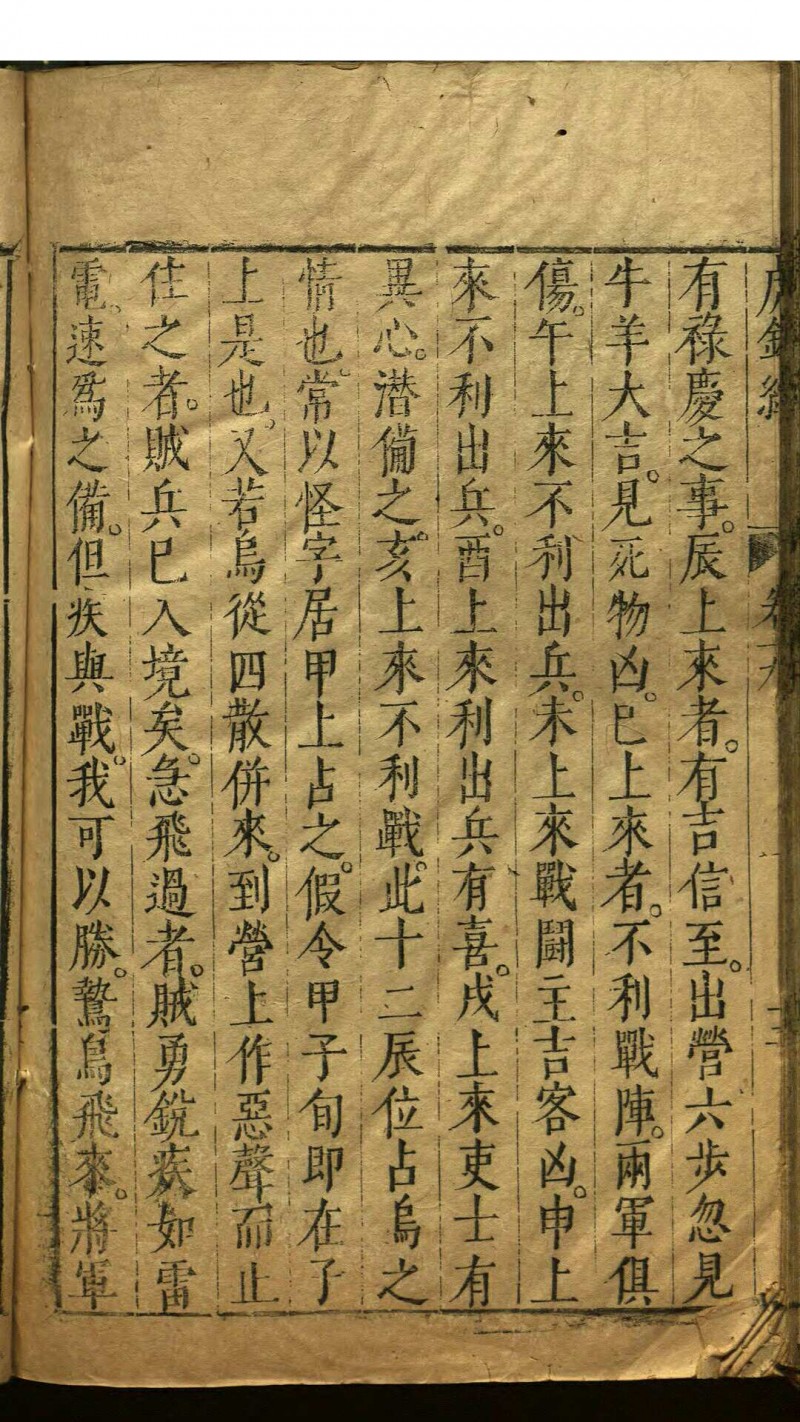 有祿慶之事。辰上來者。有吉信至。出營六步忽見
牛羊大吉。見死物凶。巳上來者。不利戰陣。兩軍俱
傷。午上來不利出兵。未上來戰鬪主吉客凶。申上
來不利出兵。酉上來利出兵有喜。戌上來吏士有
異心。潜備之。亥上來不利戰。此十二辰位占烏之
情也。常以怪字居甲上占之。假令甲子旬即在子
上是也。又若烏從四散併來。到營上作惡聲而止
住之者。賊兵巳入境矣。急飛過者。賊勇銳疾如雷
電、速爲之備。但疾與戰。我可以勝。鷙鳥飛來。將軍